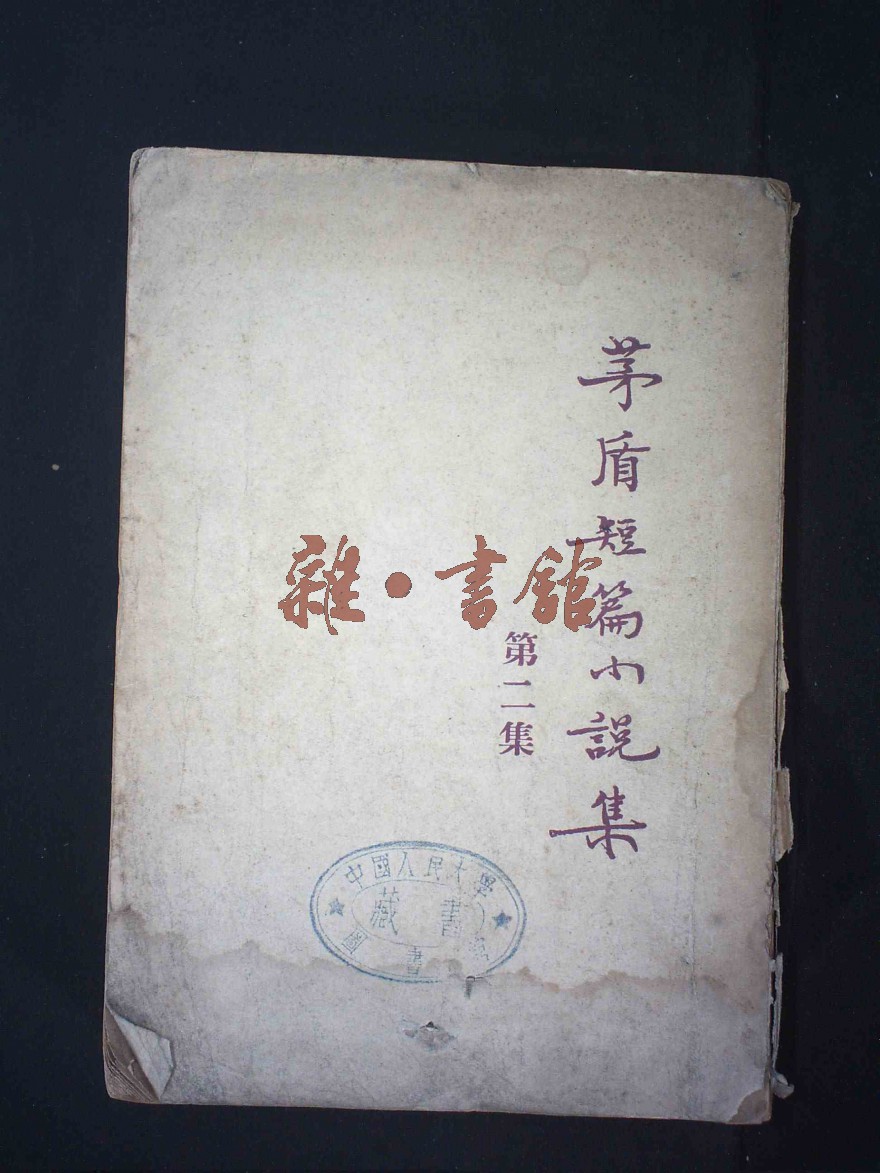 茅盾短篇小説集
第二集
雜·書館
中國人民大學
藏書
圖書館